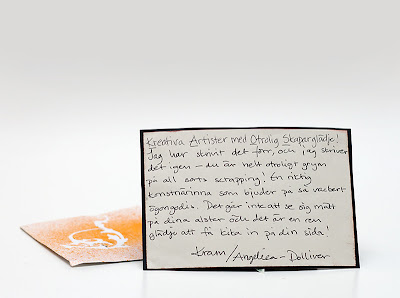 Kreativa Artister med Otrolig Skaparglädje!
Jag har skrivit det förr, och jag skriver
det igen - du är helt otroligt grym
på all sorts scrapping! En riktig
konstnärinna som bjuder på så vackert
ögongodis. Det går inte att se sig mätt
på dina alster och det är en ren
glädje att få kika in på din sida!
Kram/Angelica - Dolliver